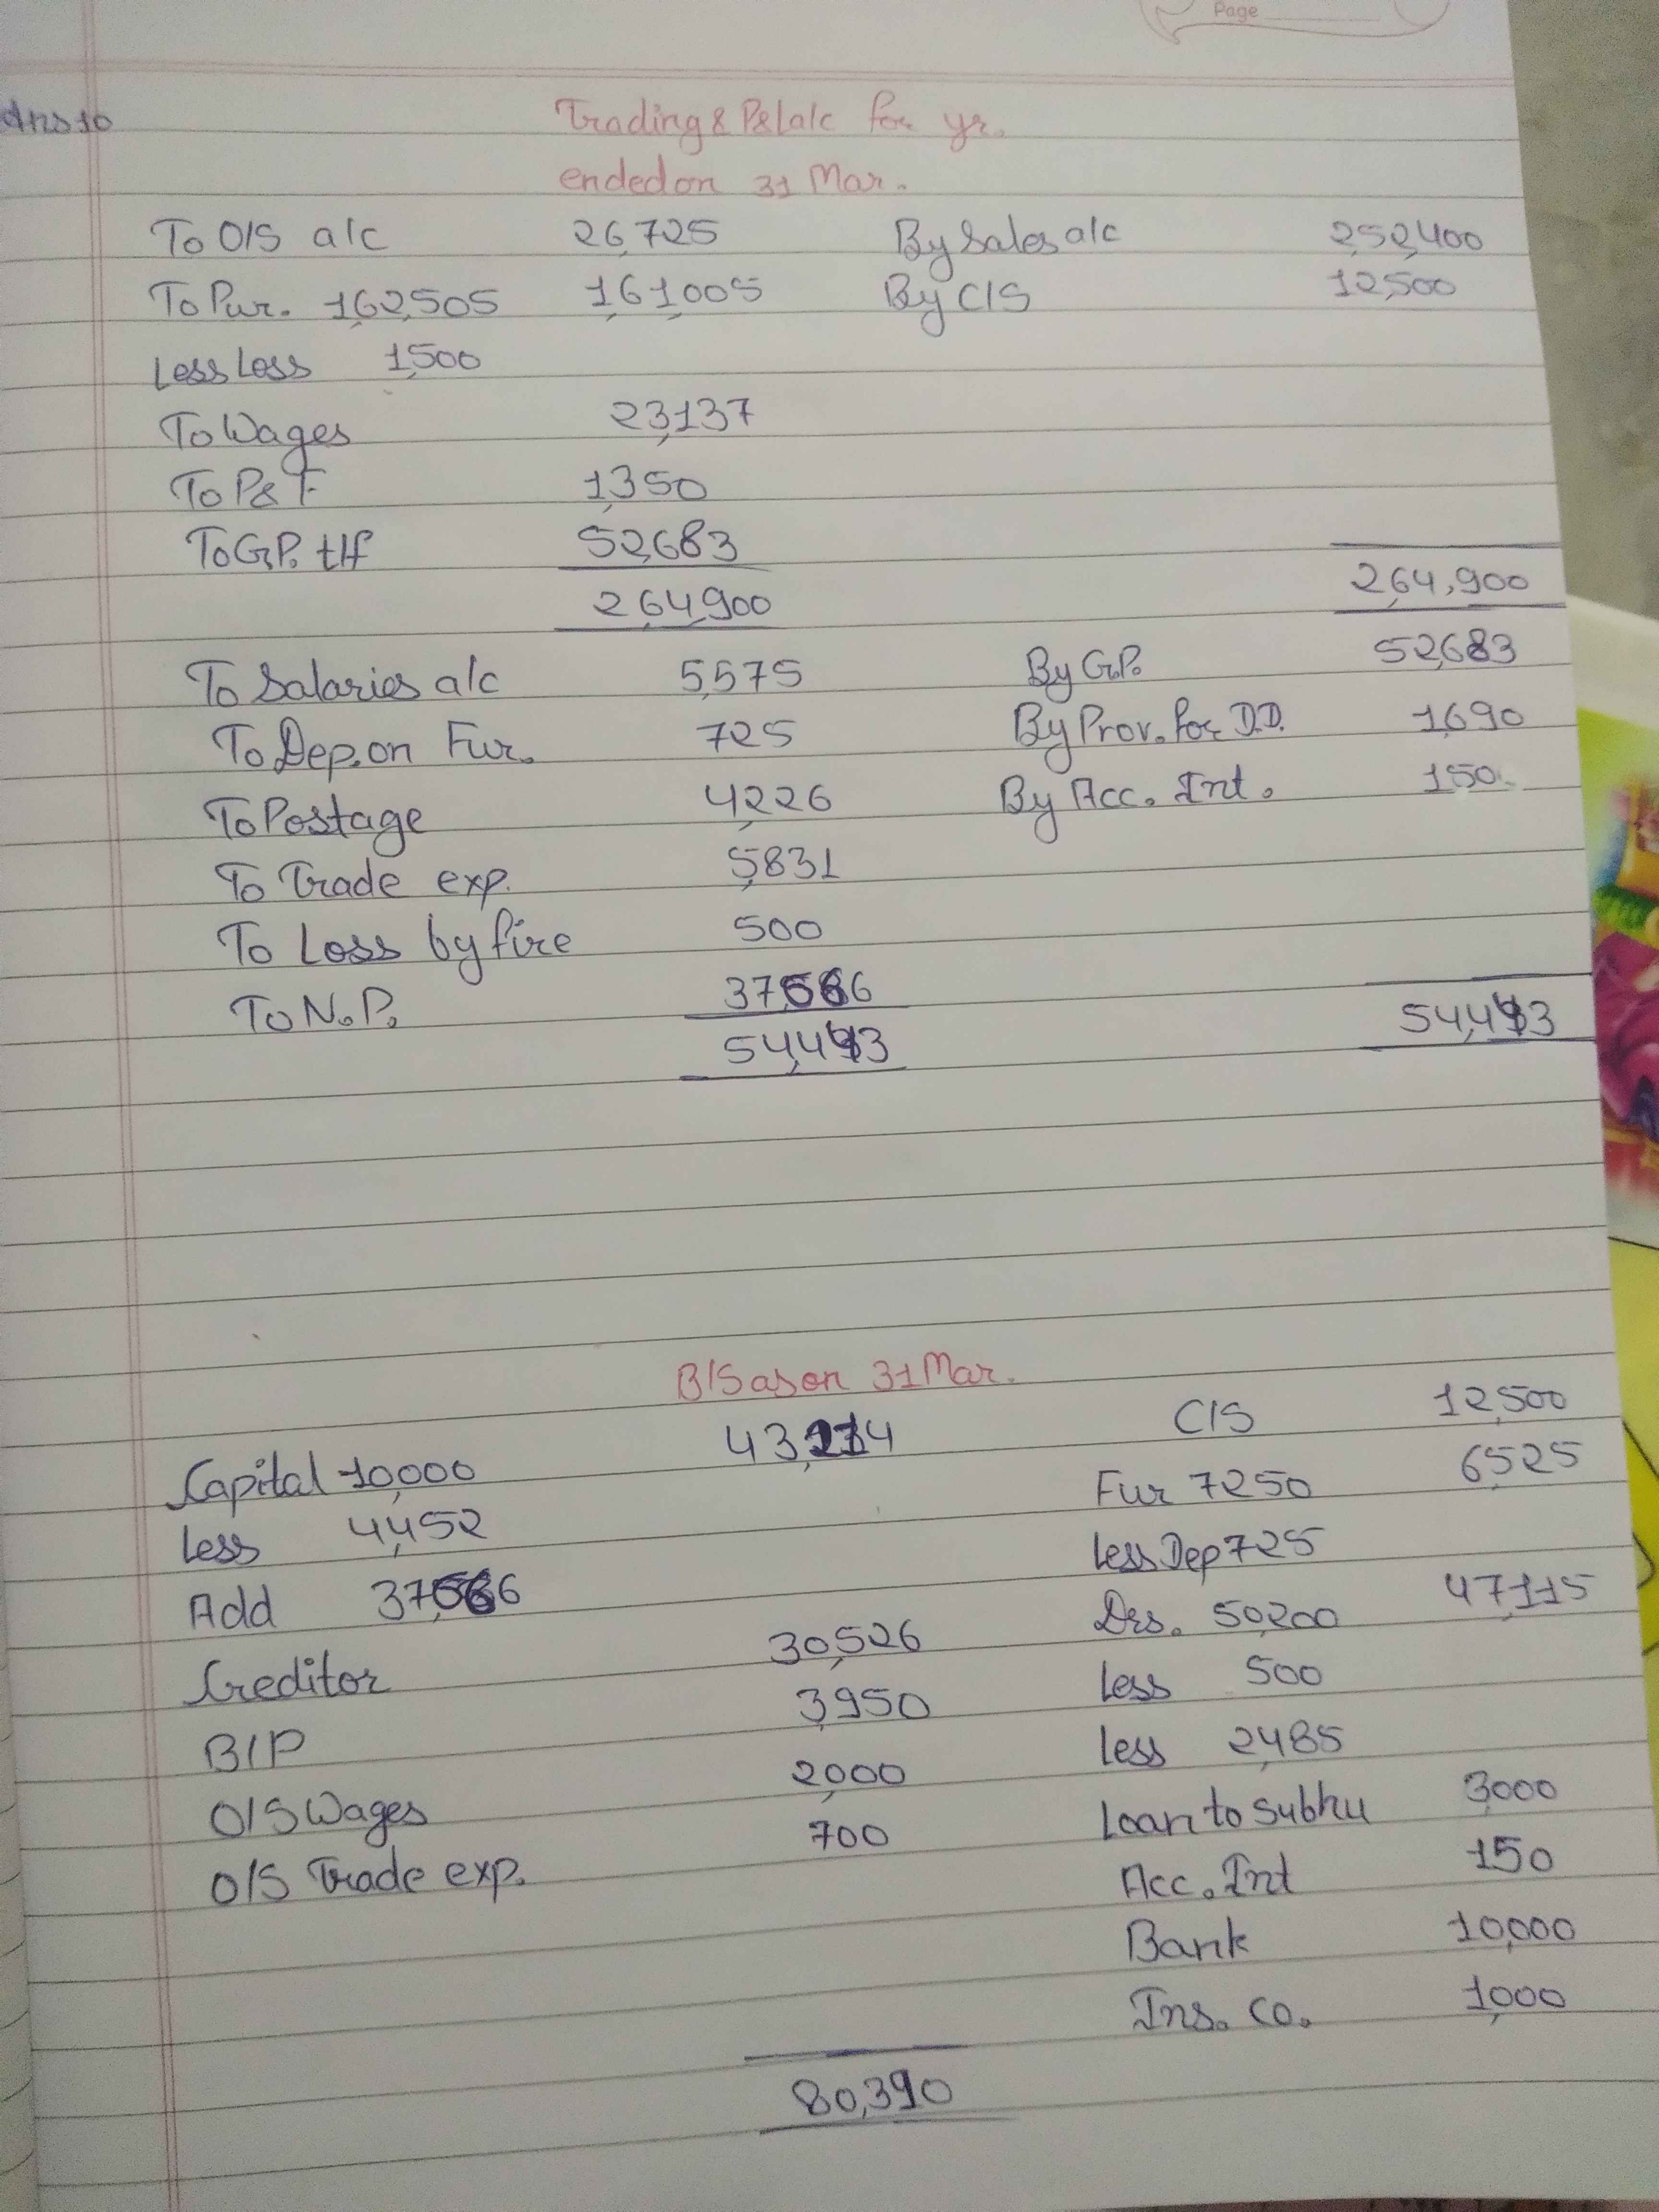 Page
Ans 10
Trading & P&L a/c for yr.
ended on 31 Mar.
To O/S a/c 26,725 By Sales a/c 2,52,400
To Pur. 1,62,505 1,61,005 By C/S 12,500
Less Loss 1,500
To Wages 23,137
To P&F 1,350
To G.P. t/f 52,683
2,64,900 2,64,900
To Salaries a/c 5,575 By G.P. 52,683
To Dep. on Fur. 725 By Prov. for D.D. 1,690
To Postage 4,226 By Acc. Int. 150
To Trade exp. 5,831
To Loss by fire 500
To N.P.
B/S as on 31 Mar.
Capital 10,000 C/S 12,500
Less 4,452 Fur 7250 6,525
Add Less Dep 725
Creditor 30,526 Drs. 50,200 47,115
B/P 3,950 Less 500
O/S Wages 2,000 Less 2,485
O/S Trade exp. 700 Loan to Subhu 3000
Acc. Int 150
Bank 10,000
Ins. Co. 1,000
80,390